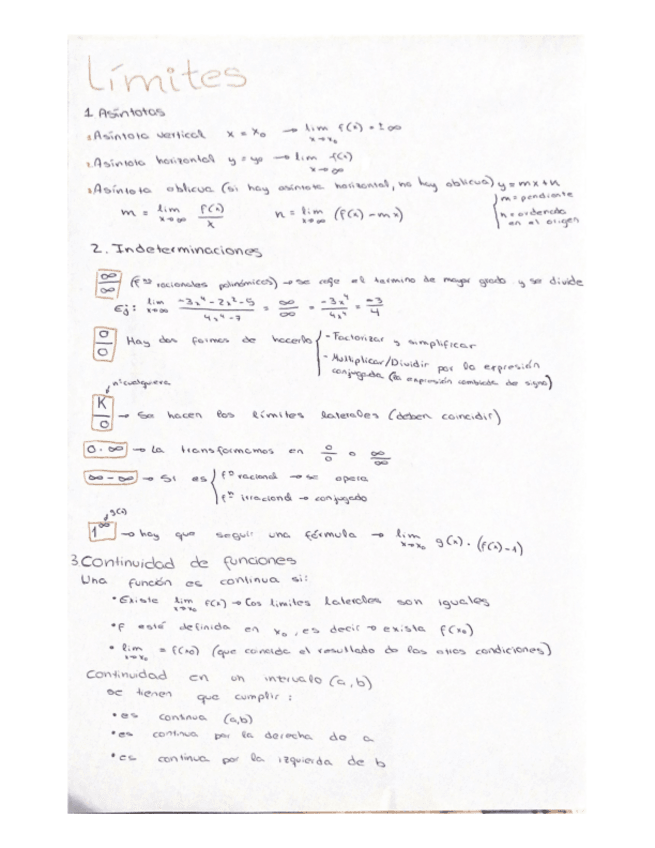 Límites
1. Asíntotas
1. Asíntota vertical x = x₀ → lim x→x₀ f(x) = ±∞
2. Asíntota horizontal y = y₀ → lim x→∞ f(x)
3. Asíntota oblicua (si hay asíntota horizontal, no hay oblicua) y = mx + n
m = lim x→∞ f(x)/x n = lim x→∞ (f(x) - mx) { m = pendiente
n = ordenada en el origen
2. Indeterminaciones
∞/∞ (fⁿᵉˢ racionales polinómicos) → se coge el termino de mayor grado y se divide
Ej: lim x→∞ (-3x⁴ - 2x² - 5)/(4x⁴ - 7) = ∞/∞ = -3x⁴/4x⁴ = -3/4
0/0 Hay dos formas de hacerlo { - Factorizar y simplificar
- Multiplicar/Dividir por la expresión
conjugada (la expresión cambiada de signo)
nº cualquiera
K/0 → Se hacen los límites laterales (deben coincidir)
0·∞ → La transformamos en 0/0 o ∞/∞
∞-∞ → Si es { fⁿ racional → se opera
fⁿ irracional → conjugado
g(x)
1^∞ → hay que seguir una fórmula → lim x→x₀ g(x) · (f(x) - 1)
3. Continuidad de funciones
Una función es continua si:
• Existe lim x→x₀ f(x) → Los limites laterales son iguales
• f está definida en x₀, es decir → exista f(x₀)
• lim x→x₀ = f(x₀) (que coincida el resultado de las otras condiciones)
Continuidad en un intervalo (a, b)
se tienen que cumplir:
• es continua (a,b)
• es continua por la derecha de a
• es continua por la izquierda de b